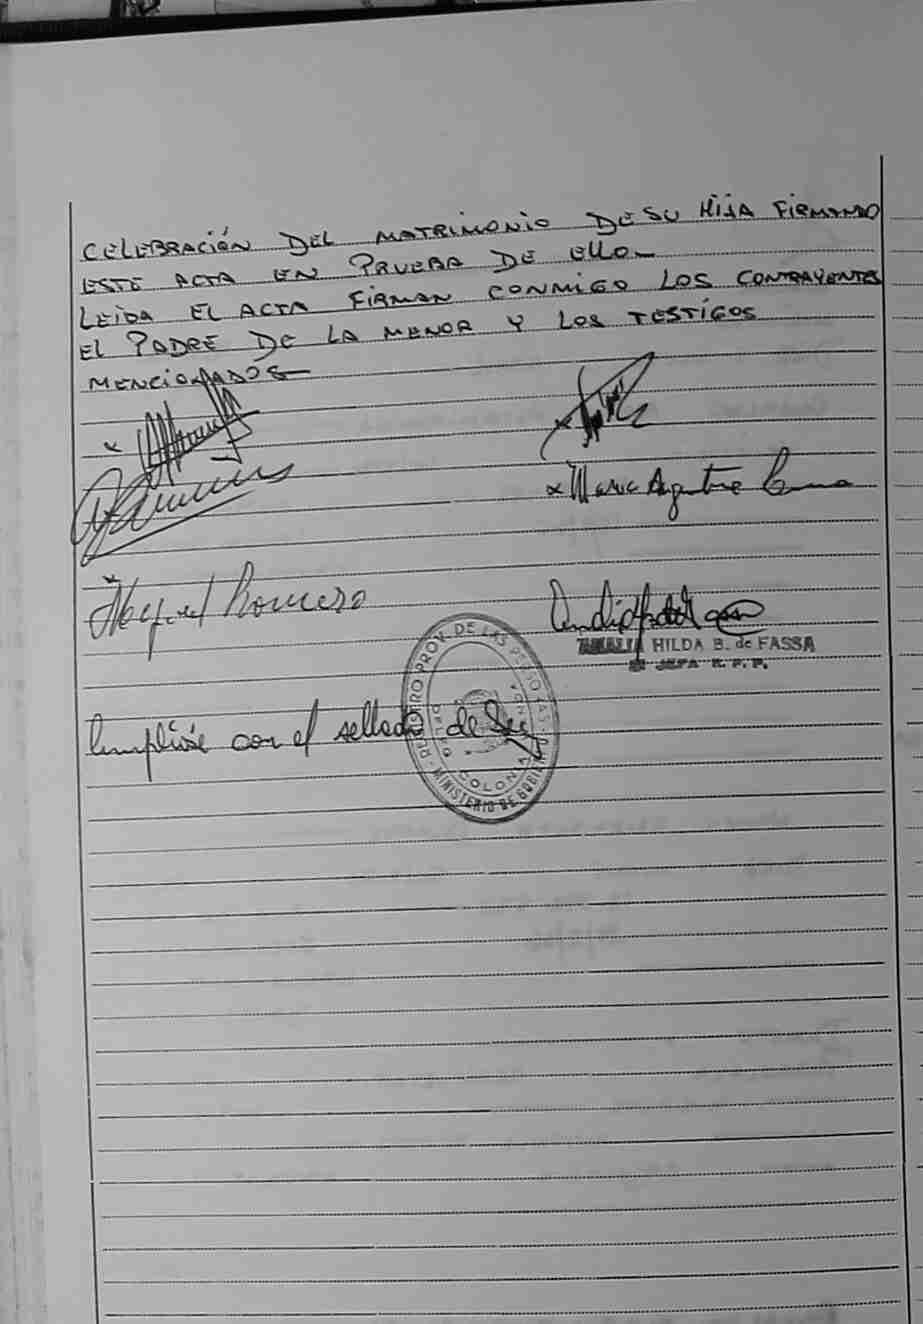 CELEBRACIÓN DEL MATRIMONIO DE SU HIJA FIRMANDO
ESTE ACTA EN PRUEBA DE ELLO—
LEIDA EL ACTA FIRMAN CONMIGO LOS CONTRAYENTES
EL PADRE DE LA MENOR Y LOS TESTIGOS
MENCIONADOS—
x
x
x Maria
Romero
AMALIA HILDA B. de FASSA
JEFA R. P. P.
REGISTRO PROV. DE LAS PERSONAS
COLONIA
MINISTERIO DE GOBIERNO
Cumplióse con el sellado de Ley